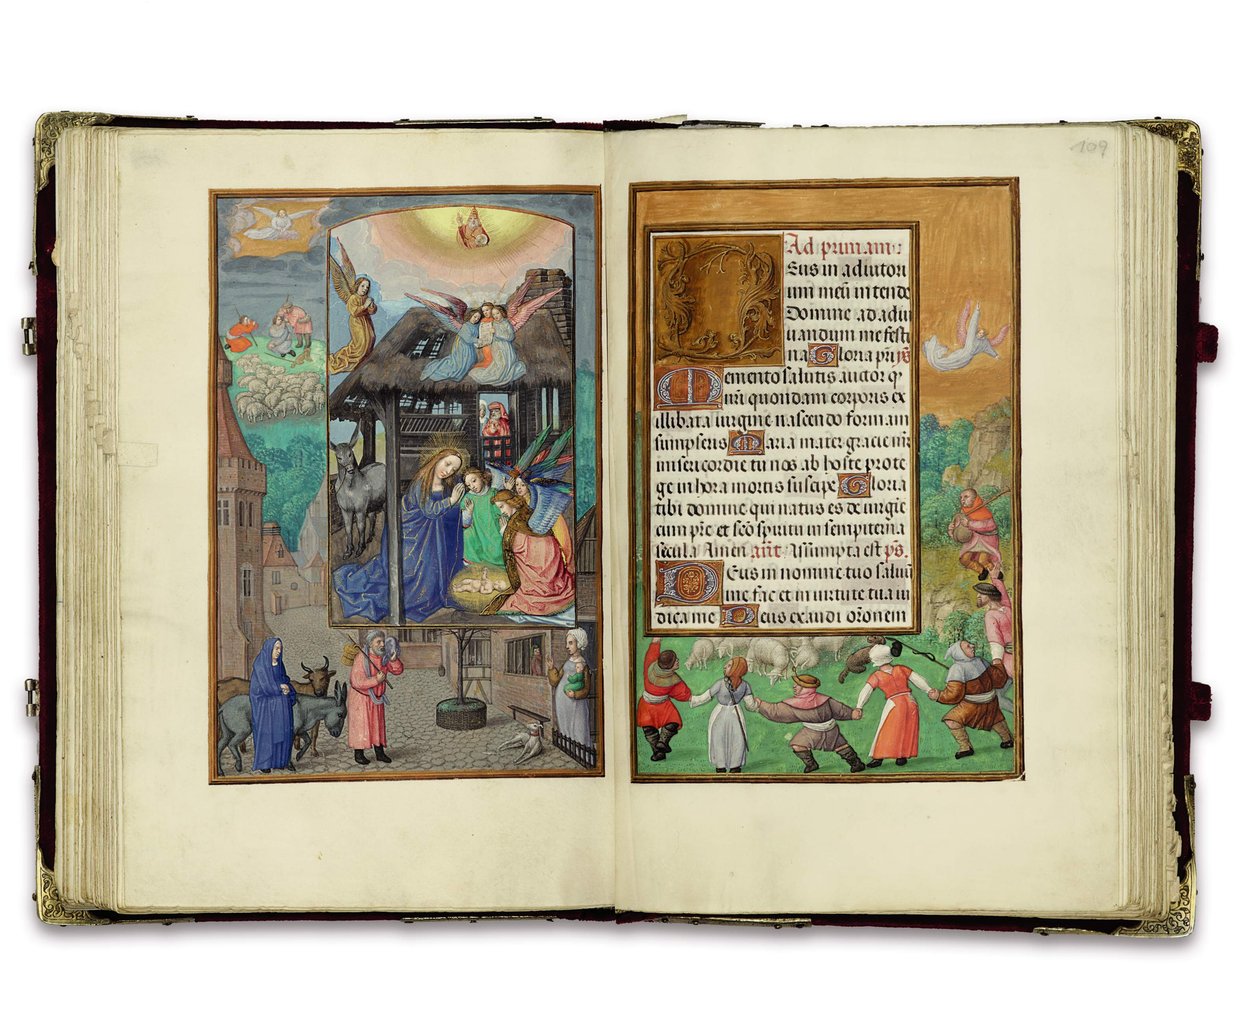 109
Ad primam:
Deus in adiutori
um meū intende
Domine ad adiu
uandum me festi
na Gloria pr̄i p̄s
Memento salutis auctor q̄
nr̄i quondam corporis ex
illibata uirgine nascendo formam
sumpseris Maria mater gracie mr̄
misericordie tu nos ab hoste prote
ge in hora mortis suscipe Gloria
tibi domine qui natus es de uirgīe
cum pr̄e et scō spiritu in sempiterna
secula Amen an̄t Assumpta est p̄s.
Deus in nomine tuo saluū
me fac et in uirtute tua iu
dica me Deus exaudi or̄onem